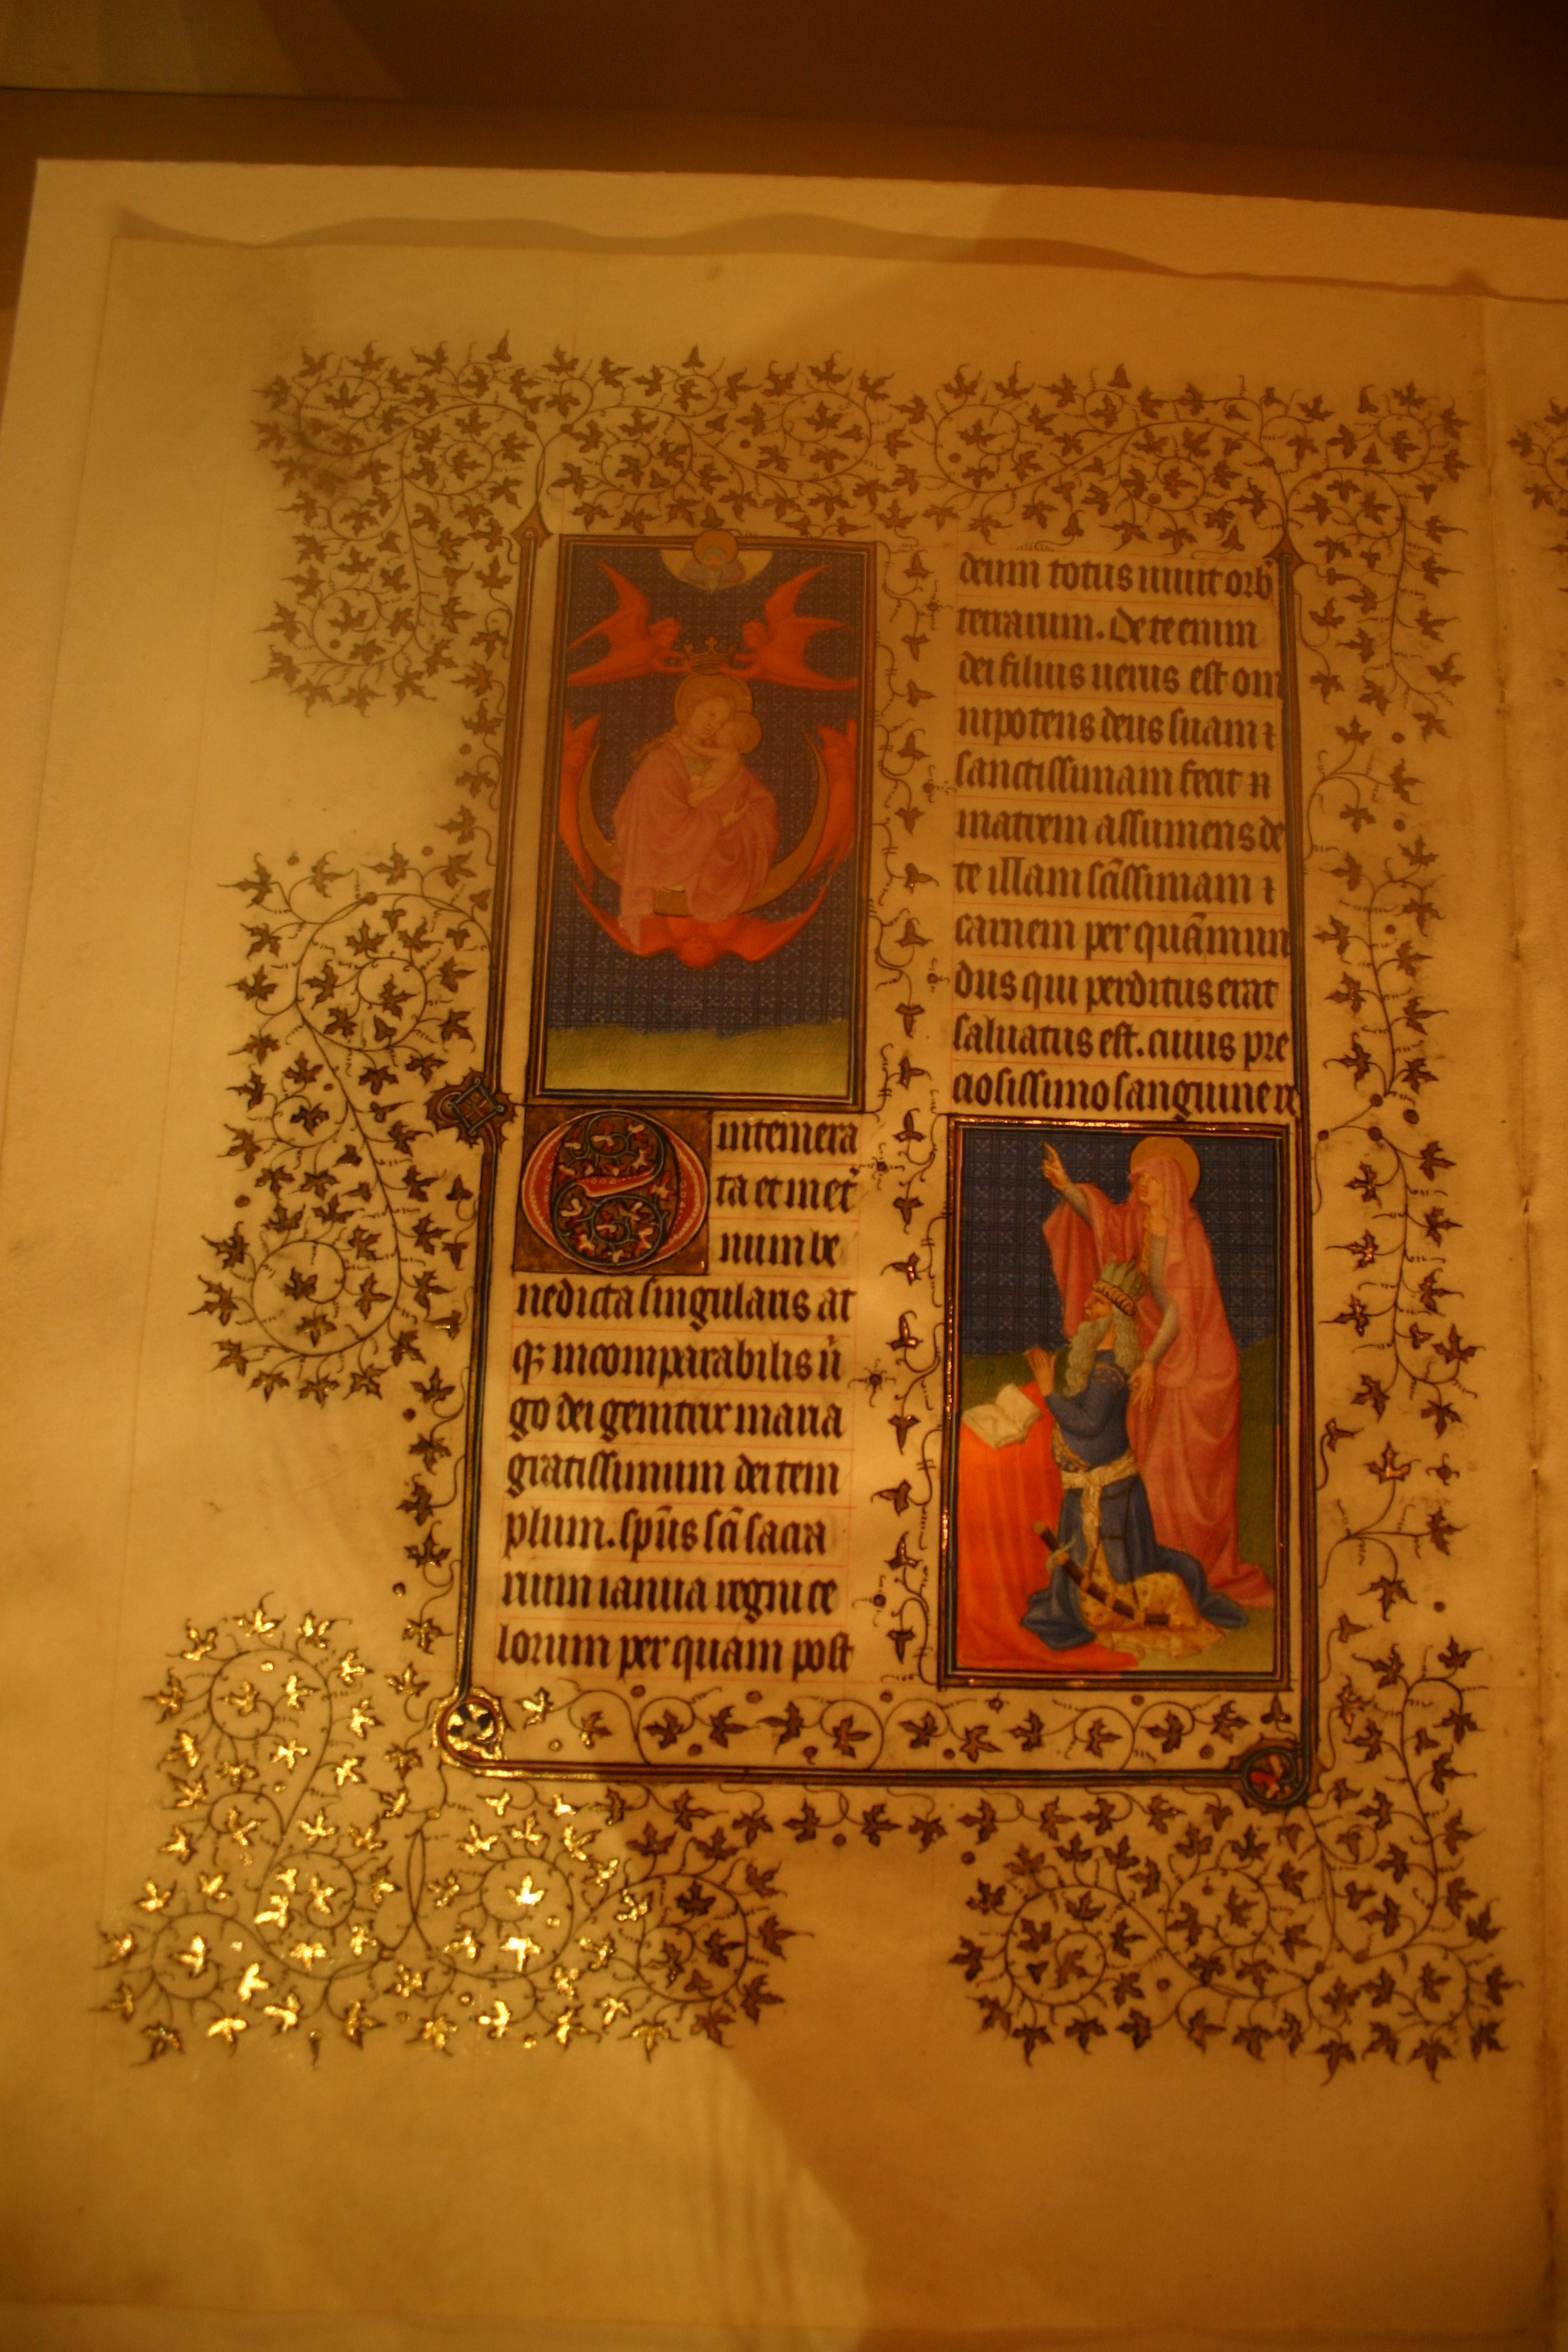 O intemera
ta et in et̄
num be
nedicta singularis at
qꝫ incomparabilis ū
go dei genitrix maria
gratissimum dei tem
plum. sp̄us sc̄i sacra
rium ianua regni ce
lorum per quam post
deum totus uiuit orb
terrarum. De te enim
dei filius uerus est om
nipotens deus suam ⁊
sanctissimam fecit
matrem assumens de
te illam sc̄issimam ⁊
carnem per quā mun
dus qui perditus erat
saluatus est. cuius pre
ciosissimo sanguine